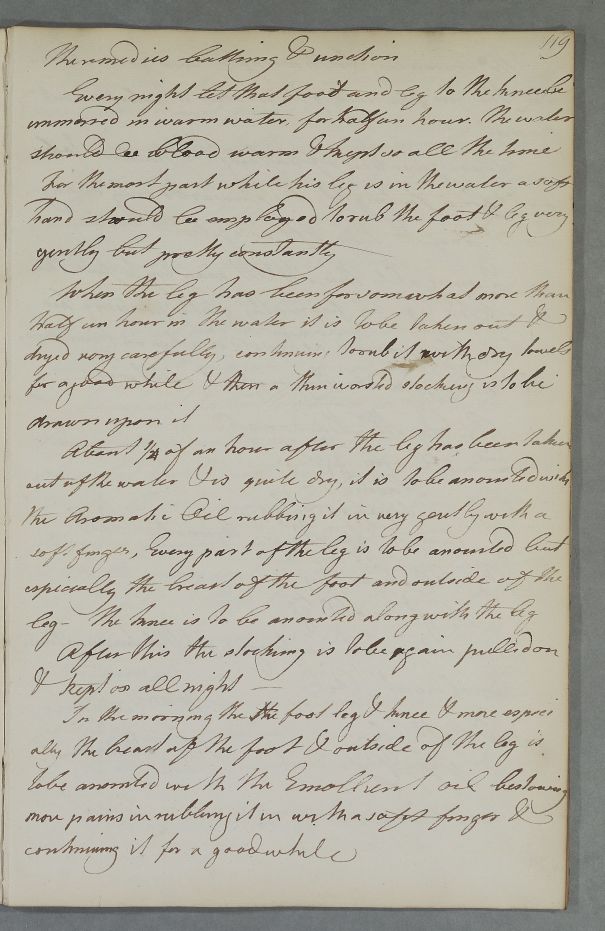 119
The remedies bathing & unction
Every night let that foot and leg to the knee be
immersed in warm water, for half an hour. The water
should be blood warm & kept so all the time
For the most part while his leg is in the water a soft
hand should be employed to rub the foot & leg very
gently but pretty constantly
When the leg has been for somewhat more than
half an hour in the water it is to be taken out &
dryed very carefully, continuing to rub it with dry towels
for a good while & then a thin worsted stocking is to be
drawn upon it
About 1/4 of an hour after the leg has been taken
out of the water & is quite dry, it is to be anointed with
the Aromatic Oil rubbing it in very gently with a
soft finger, Every part of the leg is to be anointed but
especially the breast of the foot and outside of the
leg - The knee is to be anointed along with the leg
After this the stocking is to be again pulled on
& kept so all night —
In the morning the the foot leg & knee & more especi
ally the breast of the foot & outside of the leg is
to be anointed with the Emollient oil bestowing
more pains in rubbing it in with a soft finger &
continuing it for a good while